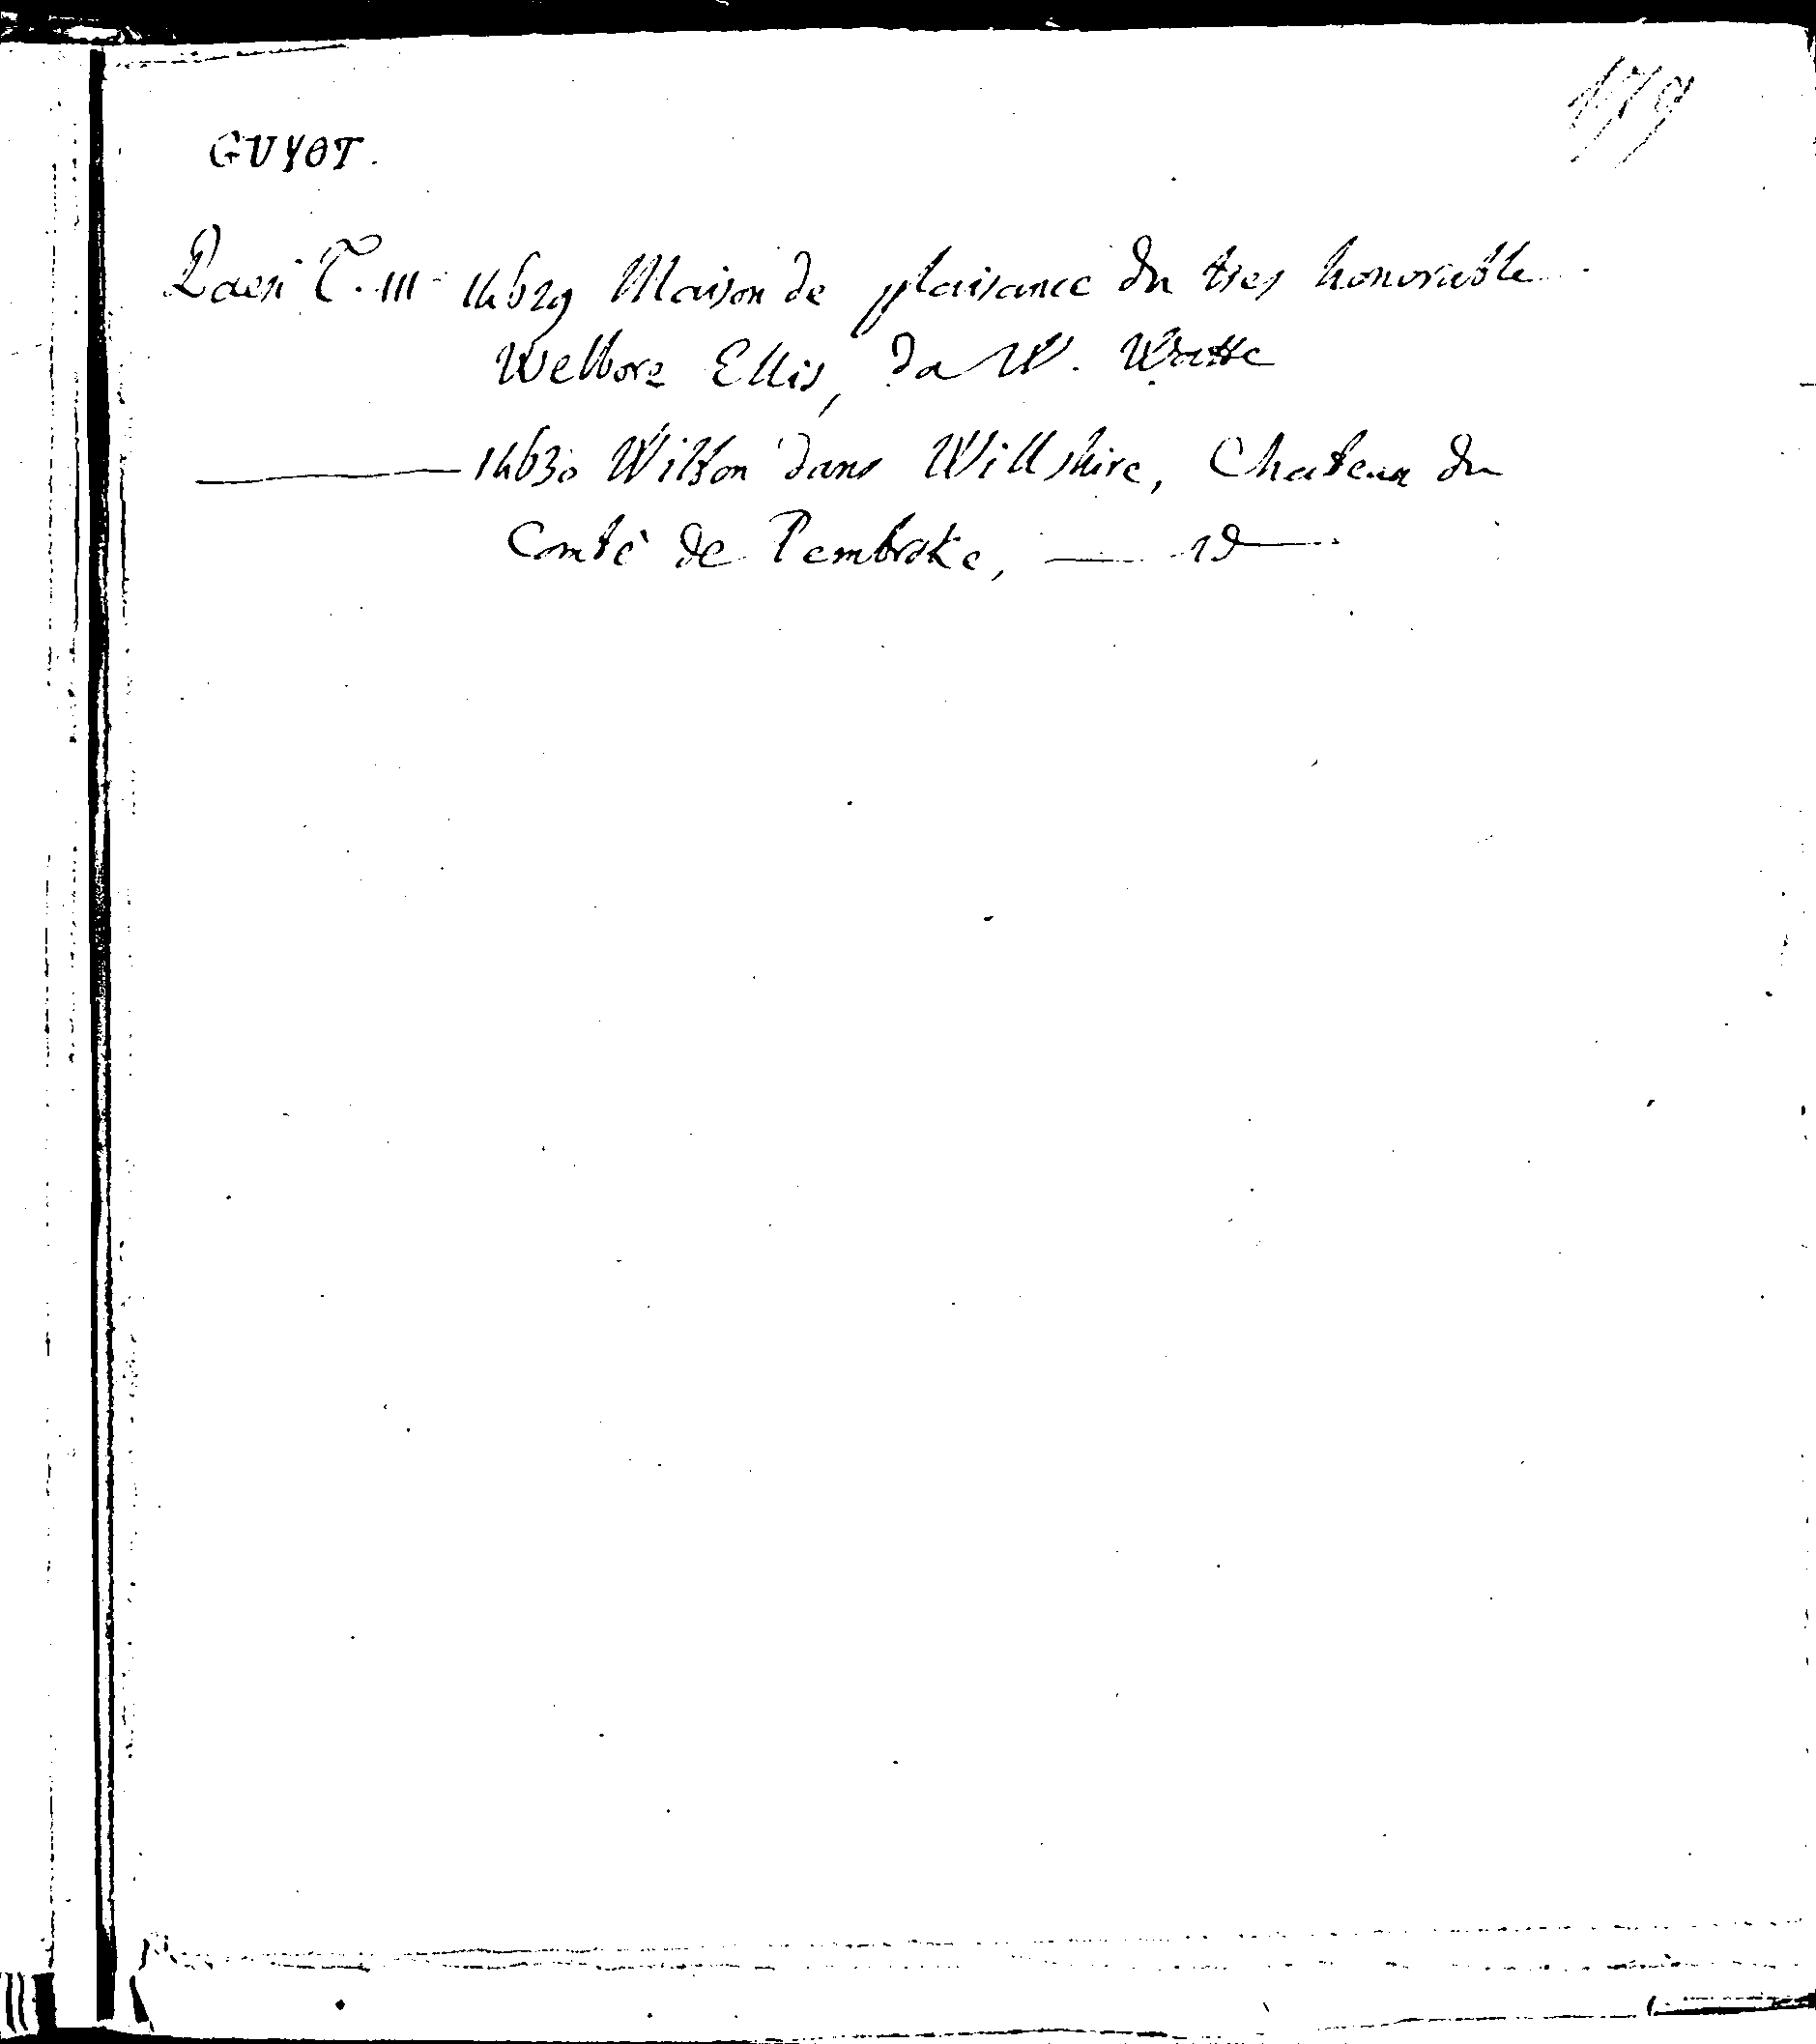 179
GUYOT.
Paesi T. III 14629 Maison de plaisance du tres honorable
Welbore Ellis, da W. Watte
14630 Wilton dans Willshire, Chateau du
Comté de Pembroke, — id —